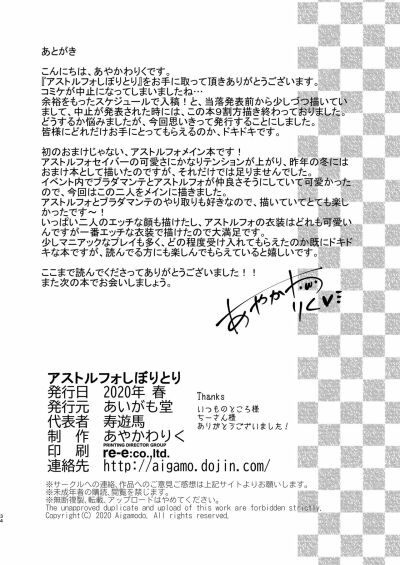 あとがき
こんにちは、あやかわりくです。
『アストルフォしぼりとり』をお手に取って頂きありがとうございます。
コミケが中止になってしまいましたね…
余裕をもったスケジュールで入稿!と、当落発表前から少しづつ描いていまして、
中止が発表された時には、この本9割方描き終わっておりました。
どうするか悩みましたが、今回思いきって発行することにしました。
皆様にどれだけお手にとってもらえるのか、ドキドキです。
初のおまけじゃない、アストルフォメイン本です!
アストルフォセイバーの可愛さにかなりテンションが上がり、昨年の冬には
おまけ本として描いたのですが、それだけでは足りませんでした。
イベント内でブラダマンテとアストルフォが仲良さそうにしていて可愛かった
ので、今回はこの二人をメインに描きました。
アストルフォとブラダマンテのやり取りも好きなので、描いていてとても楽し
かったです~!
いっぱい二人のエッチな顔も描けたし、アストルフォの衣装はどれも可愛い
んですが一番エッチな衣装で描けたので大満足です。
少しマニアックなプレイも多く、どの程度受け入れてもらえたのか既にドキド
キな本ですが、読んだ方にも楽しんでもらえていると嬉しいです。
ここまで読んでくださってありがとうございました!!
また次の本でお会いしましょう。
あやかわりく
アストルフォしぼりとり
発行日 2020年 春
発行元 あいがも堂
代表者 寿遊馬
制 作 あやかわりく
PRINTING DIRECTOR GROUP
印 刷 re-e:co.,ltd.
連絡先 http://aigamo.dojin.com/
Thanks
いつものところ様
ちーさん様
ありがとうございました!
※サークルへの連絡、作品へのご意見ご感想は上記サイトよりお願いします。
※未成年者の購読、閲覧を禁じます。
※無断複製、転載、アップロードはやめてください。
The unapproved duplicate and upload of this work are forbidden strictly.
Copyright(C) 2020 Aigamodo, All rights reserved.
34